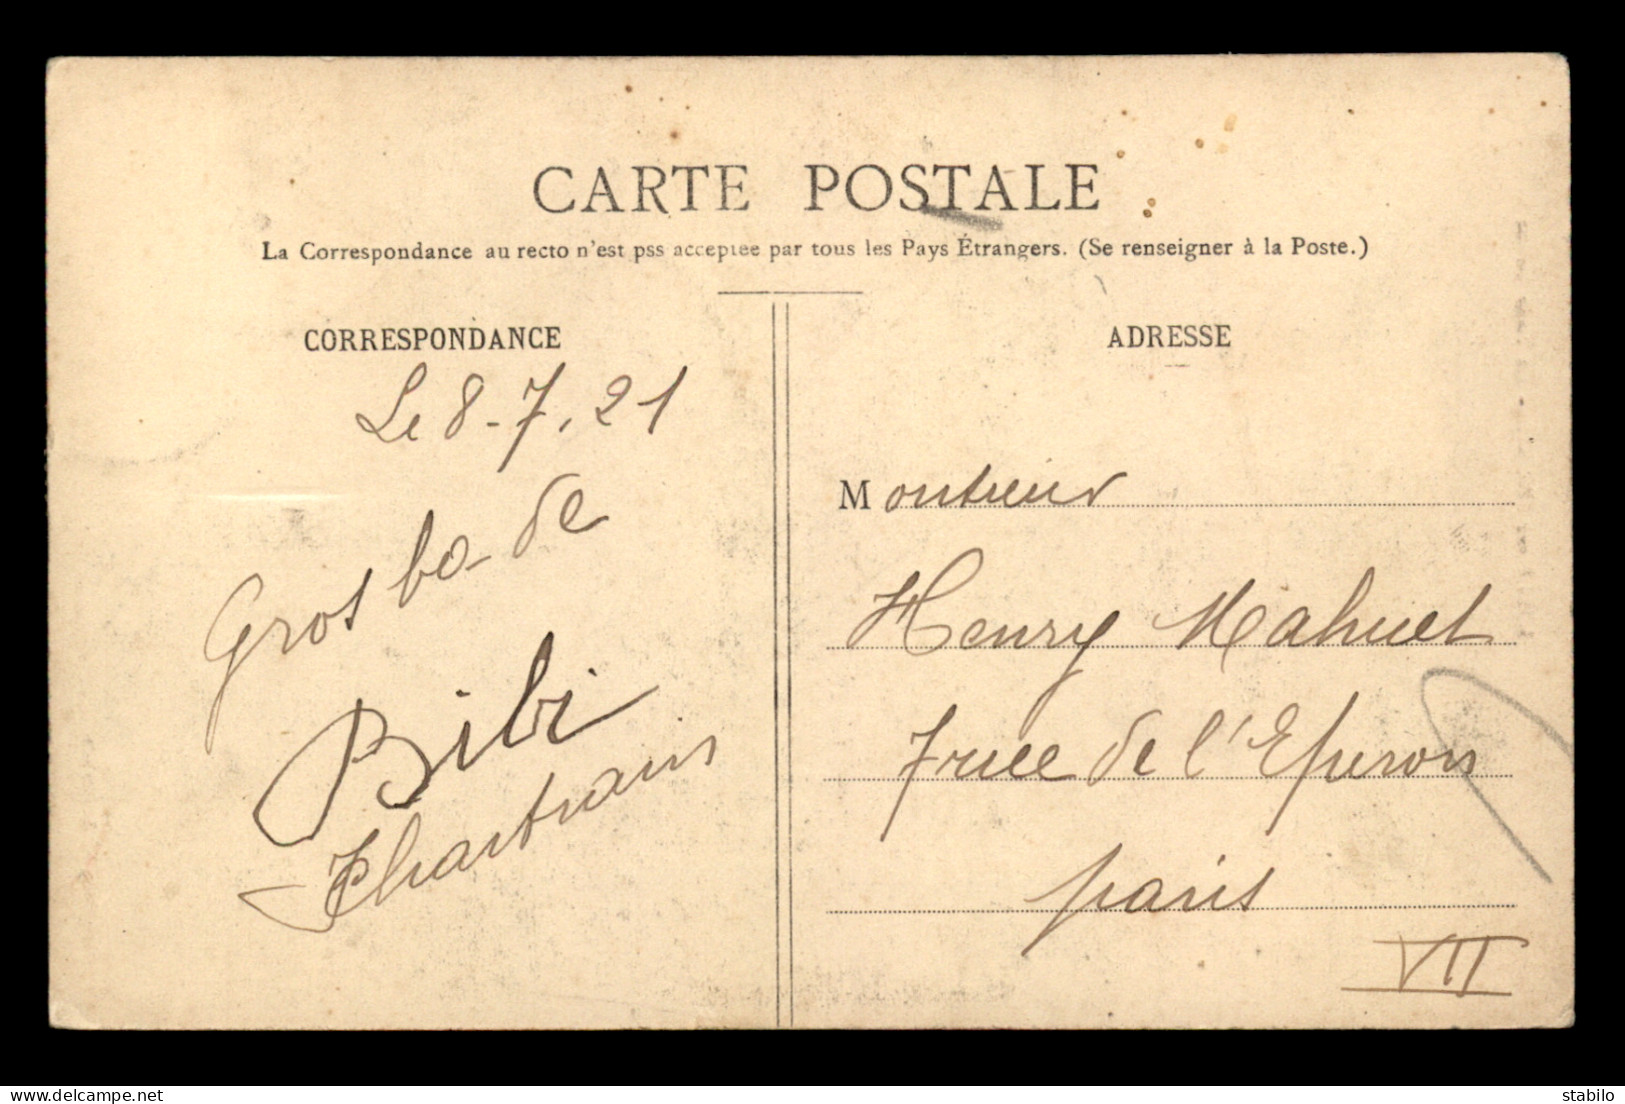 CARTE POSTALE
La Correspondance au recto n'est pss acceptee par tous les Pays Étrangers. (Se renseigner à la Poste.)
CORRESPONDANCE
Le 8-7.21
Gros bo de
Bibi
ADRESSE
Monsieur
Henry Mahuet
7 rue de l'Eperon
paris
VII
delcampe.net
stabilo